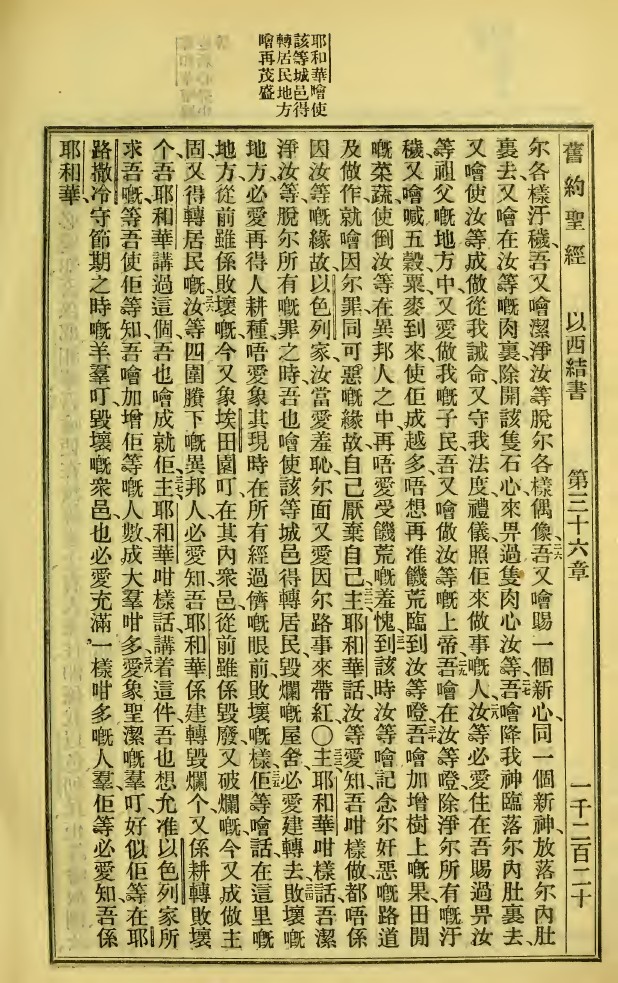 耶和華噲使
該等城邑得
轉居民地方
噲再茂盛
舊約聖經 以西結書 第三十六章 一千二百二十
尔各樣汙穢、吾又噲潔淨汝等脫尔各樣偶像、二六吾又噲賜一個新心、同一個新神、放落尔內肚
裏去、又噲在汝等嘅肉裏、除開該隻石心來、畀過隻肉心汝等、二七吾噲降我神臨落尔內肚裏去、
又噲使汝等成做從我誡命、又守我法度禮儀、照佢來做事嘅人、二八汝等必愛住在吾賜過畀汝
等祖父嘅地方中、又愛做我嘅子民、吾又噲做汝等嘅上帝、二九吾噲在汝等噔除淨尔所有嘅汙
穢、又噲喊五穀粟麥到來、使佢成越多、唔想再准饑荒臨到汝等噔、三十吾噲加增樹上嘅果、田間
嘅菜蔬、使倒汝等在異邦人之中、再唔愛受饑荒嘅羞愧、三一到該時汝等噲記念尔奸惡嘅路道
及做作、就噲因尔罪、同可惡嘅緣故、自己厭棄自己、三二主耶和華話、汝等愛知、吾咁樣做、都唔係
因汝等嘅緣故、以色列家、汝當愛羞恥、尔面又愛因尔路事來帶紅〇三三主耶和華咁樣話、吾潔
淨汝等脫尔所有嘅罪之時、吾也噲使該等城邑得轉居民、毀爛嘅屋舍、必愛建轉去、三四敗壞嘅
地方、必愛再得人耕種、唔愛象其現時在所有經過儕嘅眼前敗壞嘅樣、三五佢等噲話、在這里嘅
地方、從前雖係敗壞嘅、今又象埃田園叮、在其內衆邑、從前雖係毀廢、又破爛嘅、今又成做主
固、又得轉居民嘅、三六汝等四圍賸下嘅異邦人、必愛知吾耶和華係建轉毀爛个、又係耕轉敗壞
个、吾耶和華講過這個、吾也噲成就佢、三七主耶和華咁樣話、講着這件、吾也想允准以色列家所
求吾嘅等、吾使佢等知、吾噲加增佢等嘅人數、成大羣咁多、三八愛象聖潔嘅羣叮、好似佢等在耶
路撒冷守節期之時嘅羊羣叮、毀壞嘅衆邑、也必愛充滿一樣咁多嘅人羣、佢等必愛知、吾係
耶和華、